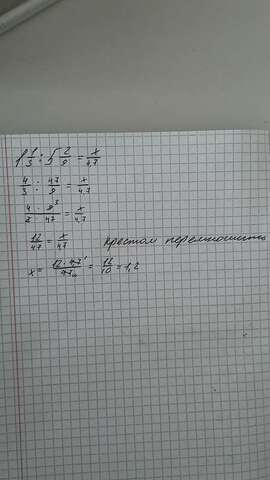 1 1/3 : 5 2/9 = x/4,7
4/3 : 47/9 = x/4,7
4/3 · 9³/47 = x/4,7
12/47 = x/4,7 крестом перемножить
x = 12·4,7¹/47₁₀ = 12/10 = 1,2